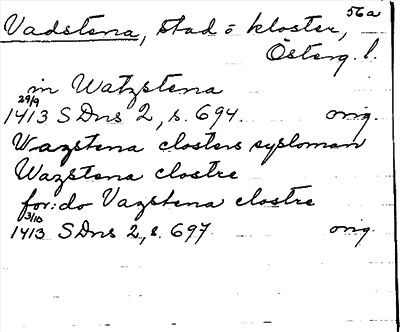 56a
Vadstena, stad o kloster,
Österg. l.
in Watzstena
29/9
1413 SDns 2, s. 694. orig.
Wazstena closters sysloman
Wazstena clostre
for: do Vazstena clostre
3/10
1413 SDns 2, s. 697. orig.